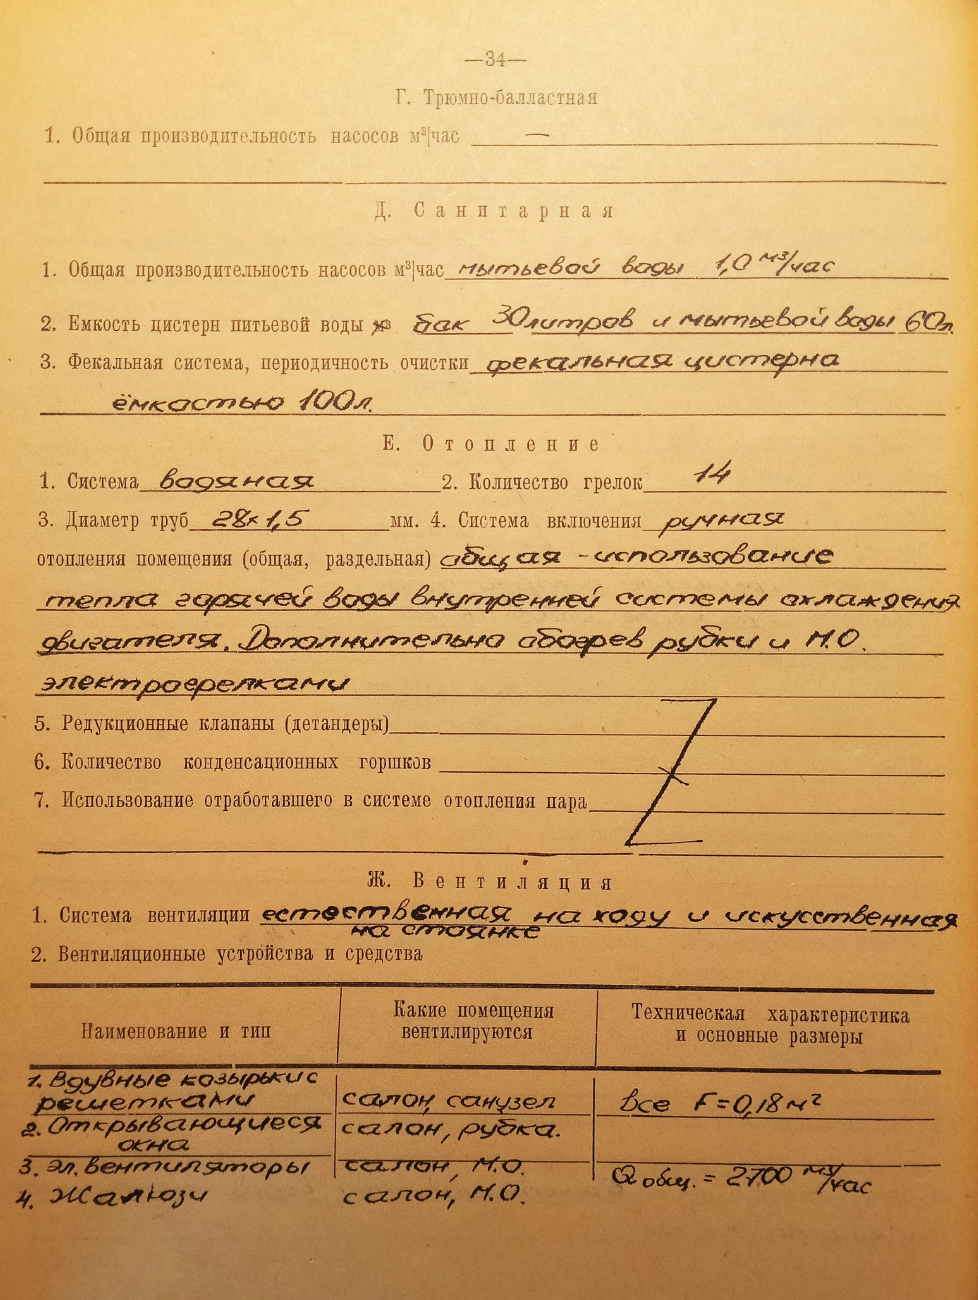 —34—
Г. Трюмно-балластная
1. Общая производительность насосов м³|час —
Д. Санитарная
1. Общая производительность насосов м³|час мытьевой воды 1,0 м³/час
2. Емкость цистерн питьевой воды м³ бак 30 литров и мытьевой воды 60л.
3. Фекальная система, периодичность очистки фекальная цистерна
ёмкостью 100л.
Е. Отопление
1. Система водяная 2. Количество грелок 14
3. Диаметр труб 28×1,5 мм. 4. Система включения ручная
отопления помещения (общая, раздельная) общая - использование
тепла горячей воды внутренней системы охлаждения
двигателя. Дополнительно обогрев рубки и М.О.
электрогрелками
5. Редукционные клапаны (детандеры)
6. Количество конденсационных горшков
7. Использование отработавшего в системе отопления пара
Ж. Вентиляция
1. Система вентиляции естественная на ходу и искусственная
на стоянке
2. Вентиляционные устройства и средства
Наименование и тип Какие помещения вентилируются Техническая характеристика и основные размеры
1. Вдувные козырьки с
решетками салон, санузел все F=0,18 м²
2. Открывающиеся
окна салон, рубка.
3. Эл. вентиляторы салон, М.О. Q общ. = 2700 м³/час
4. Жалюзи салон, М.О.